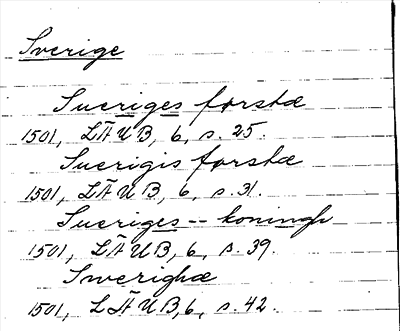 Sverige
Sueriges forstæ
1501, LÄUB, 6, s. 25.
Suerigis forstæ
1501, LÄUB, 6, s. 31.
Sueriges -- koningh
1501, LÄUB, 6, s. 39.
Swerighæ
1501, LÄUB, 6, s. 42.